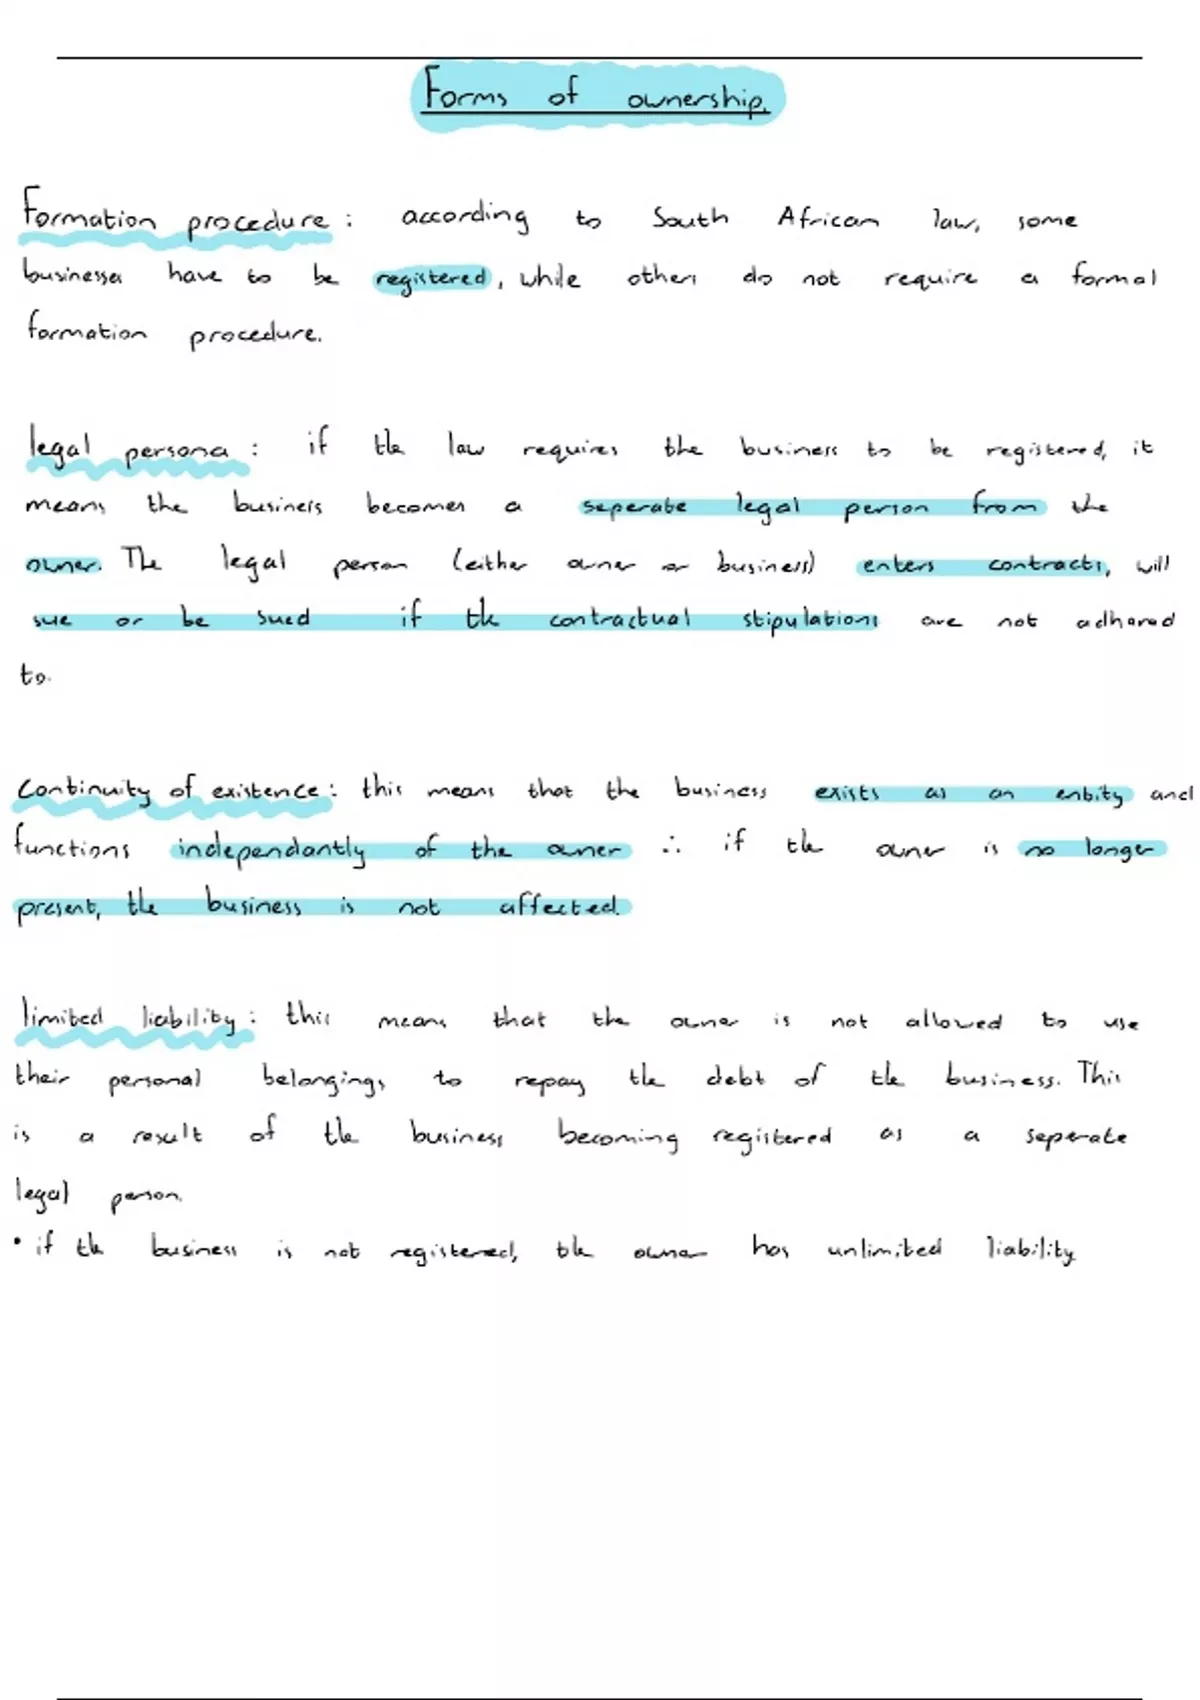 Forms of ownership.
Formation procedure : according to South African law, some
businesses have to be registered, while others do not require a formal
formation procedure.
legal persona : if the law requires the business to be registered, it
means the business becomes a seperate legal person from the
owner. The legal person (either owner or business) enters contracts, will
sue or be sued if the contractual stipulations are not adhared
to.
Continuity of existence : this means that the business exists as an entity and
functions independantly of the owner ∴ if the owner is no longer
present, the business is not affected.
limited liability : this means that the owner is not allowed to use
their personal belongings to repay the debt of the business. This
is a result of the business becoming registered as a seperate
legal person.
• if the business is not registered, the owner has unlimited liability